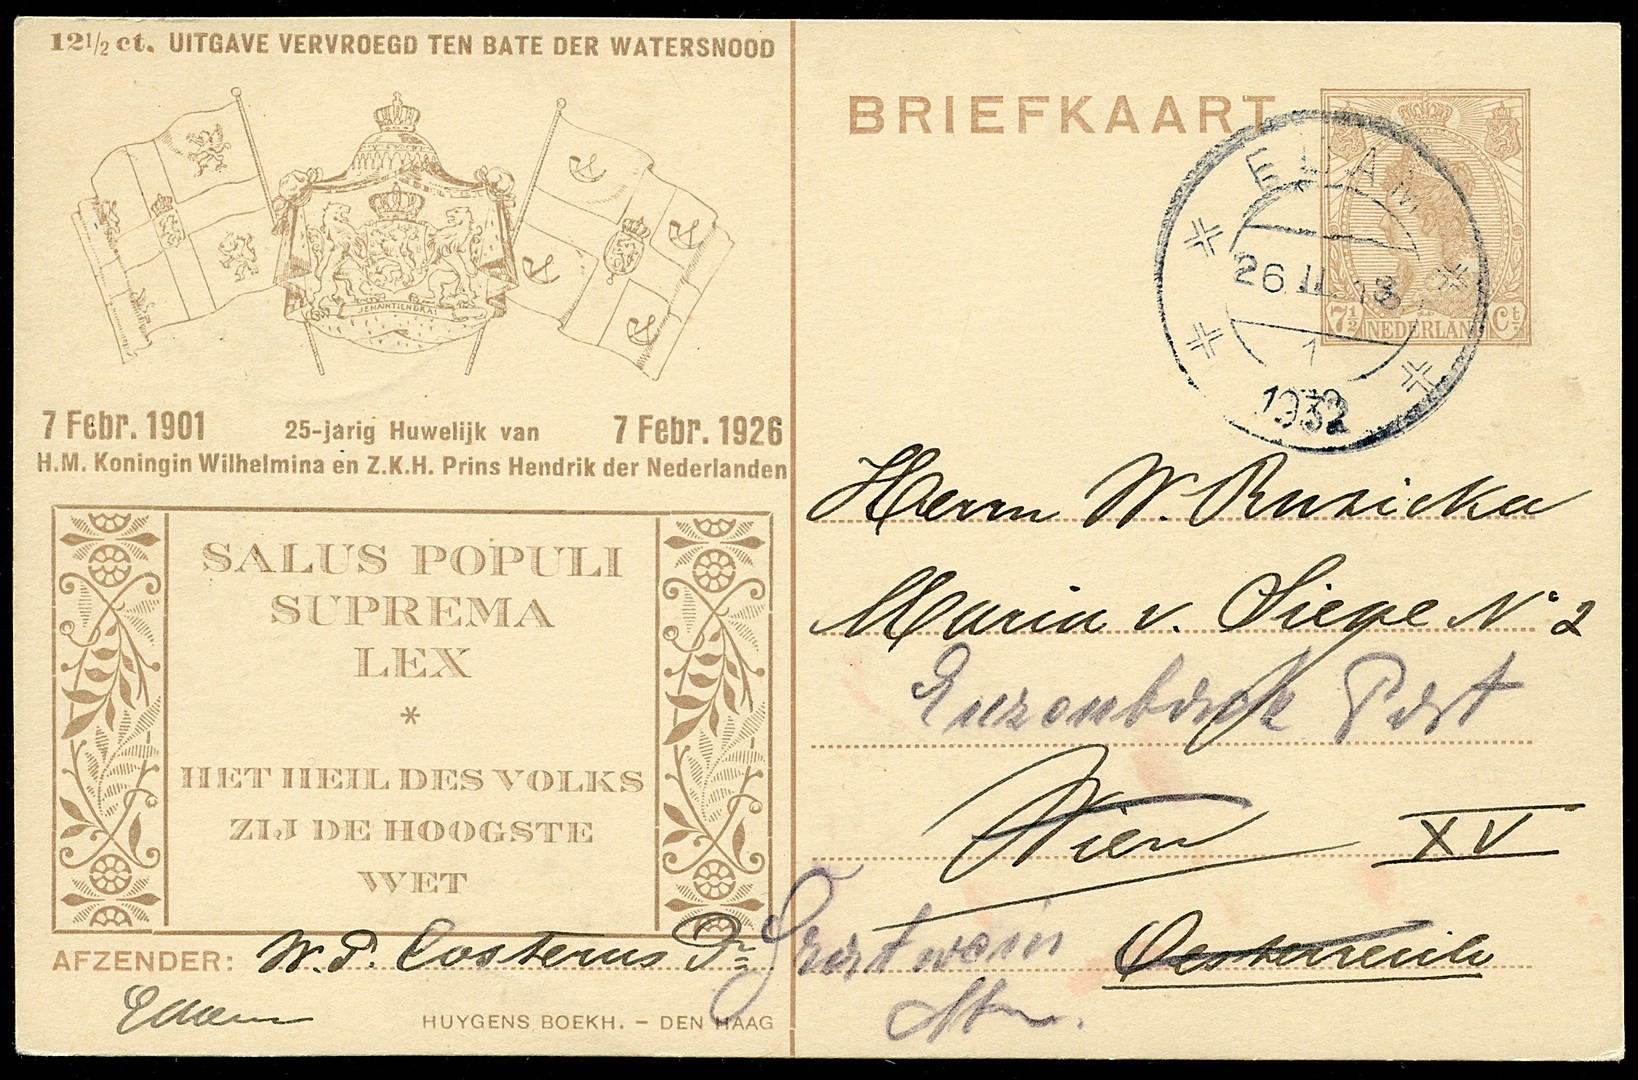 12½ ct. UITGAVE VERVROEGD TEN BATE DER WATERSNOOD
JE MAINTIENDRAI
7 Febr. 1901 25-jarig Huwelijk van 7 Febr. 1926
H.M. Koningin Wilhelmina en Z.K.H. Prins Hendrik der Nederlanden
SALUS POPULI
SUPREMA
LEX
*
HET HEIL DES VOLKS
ZIJ DE HOOGSTE
WET
AFZENDER: W.P. Costerus Pzn
Edam
HUYGENS BOEKH. – DEN HAAG
BRIEFKAART
7½ NEDERLAND Ct
EDAM
26.II.
1
1932
Herrn W. Ruzicka
Maria v. Siege No 2
Post
Wien XV
Oesterreich